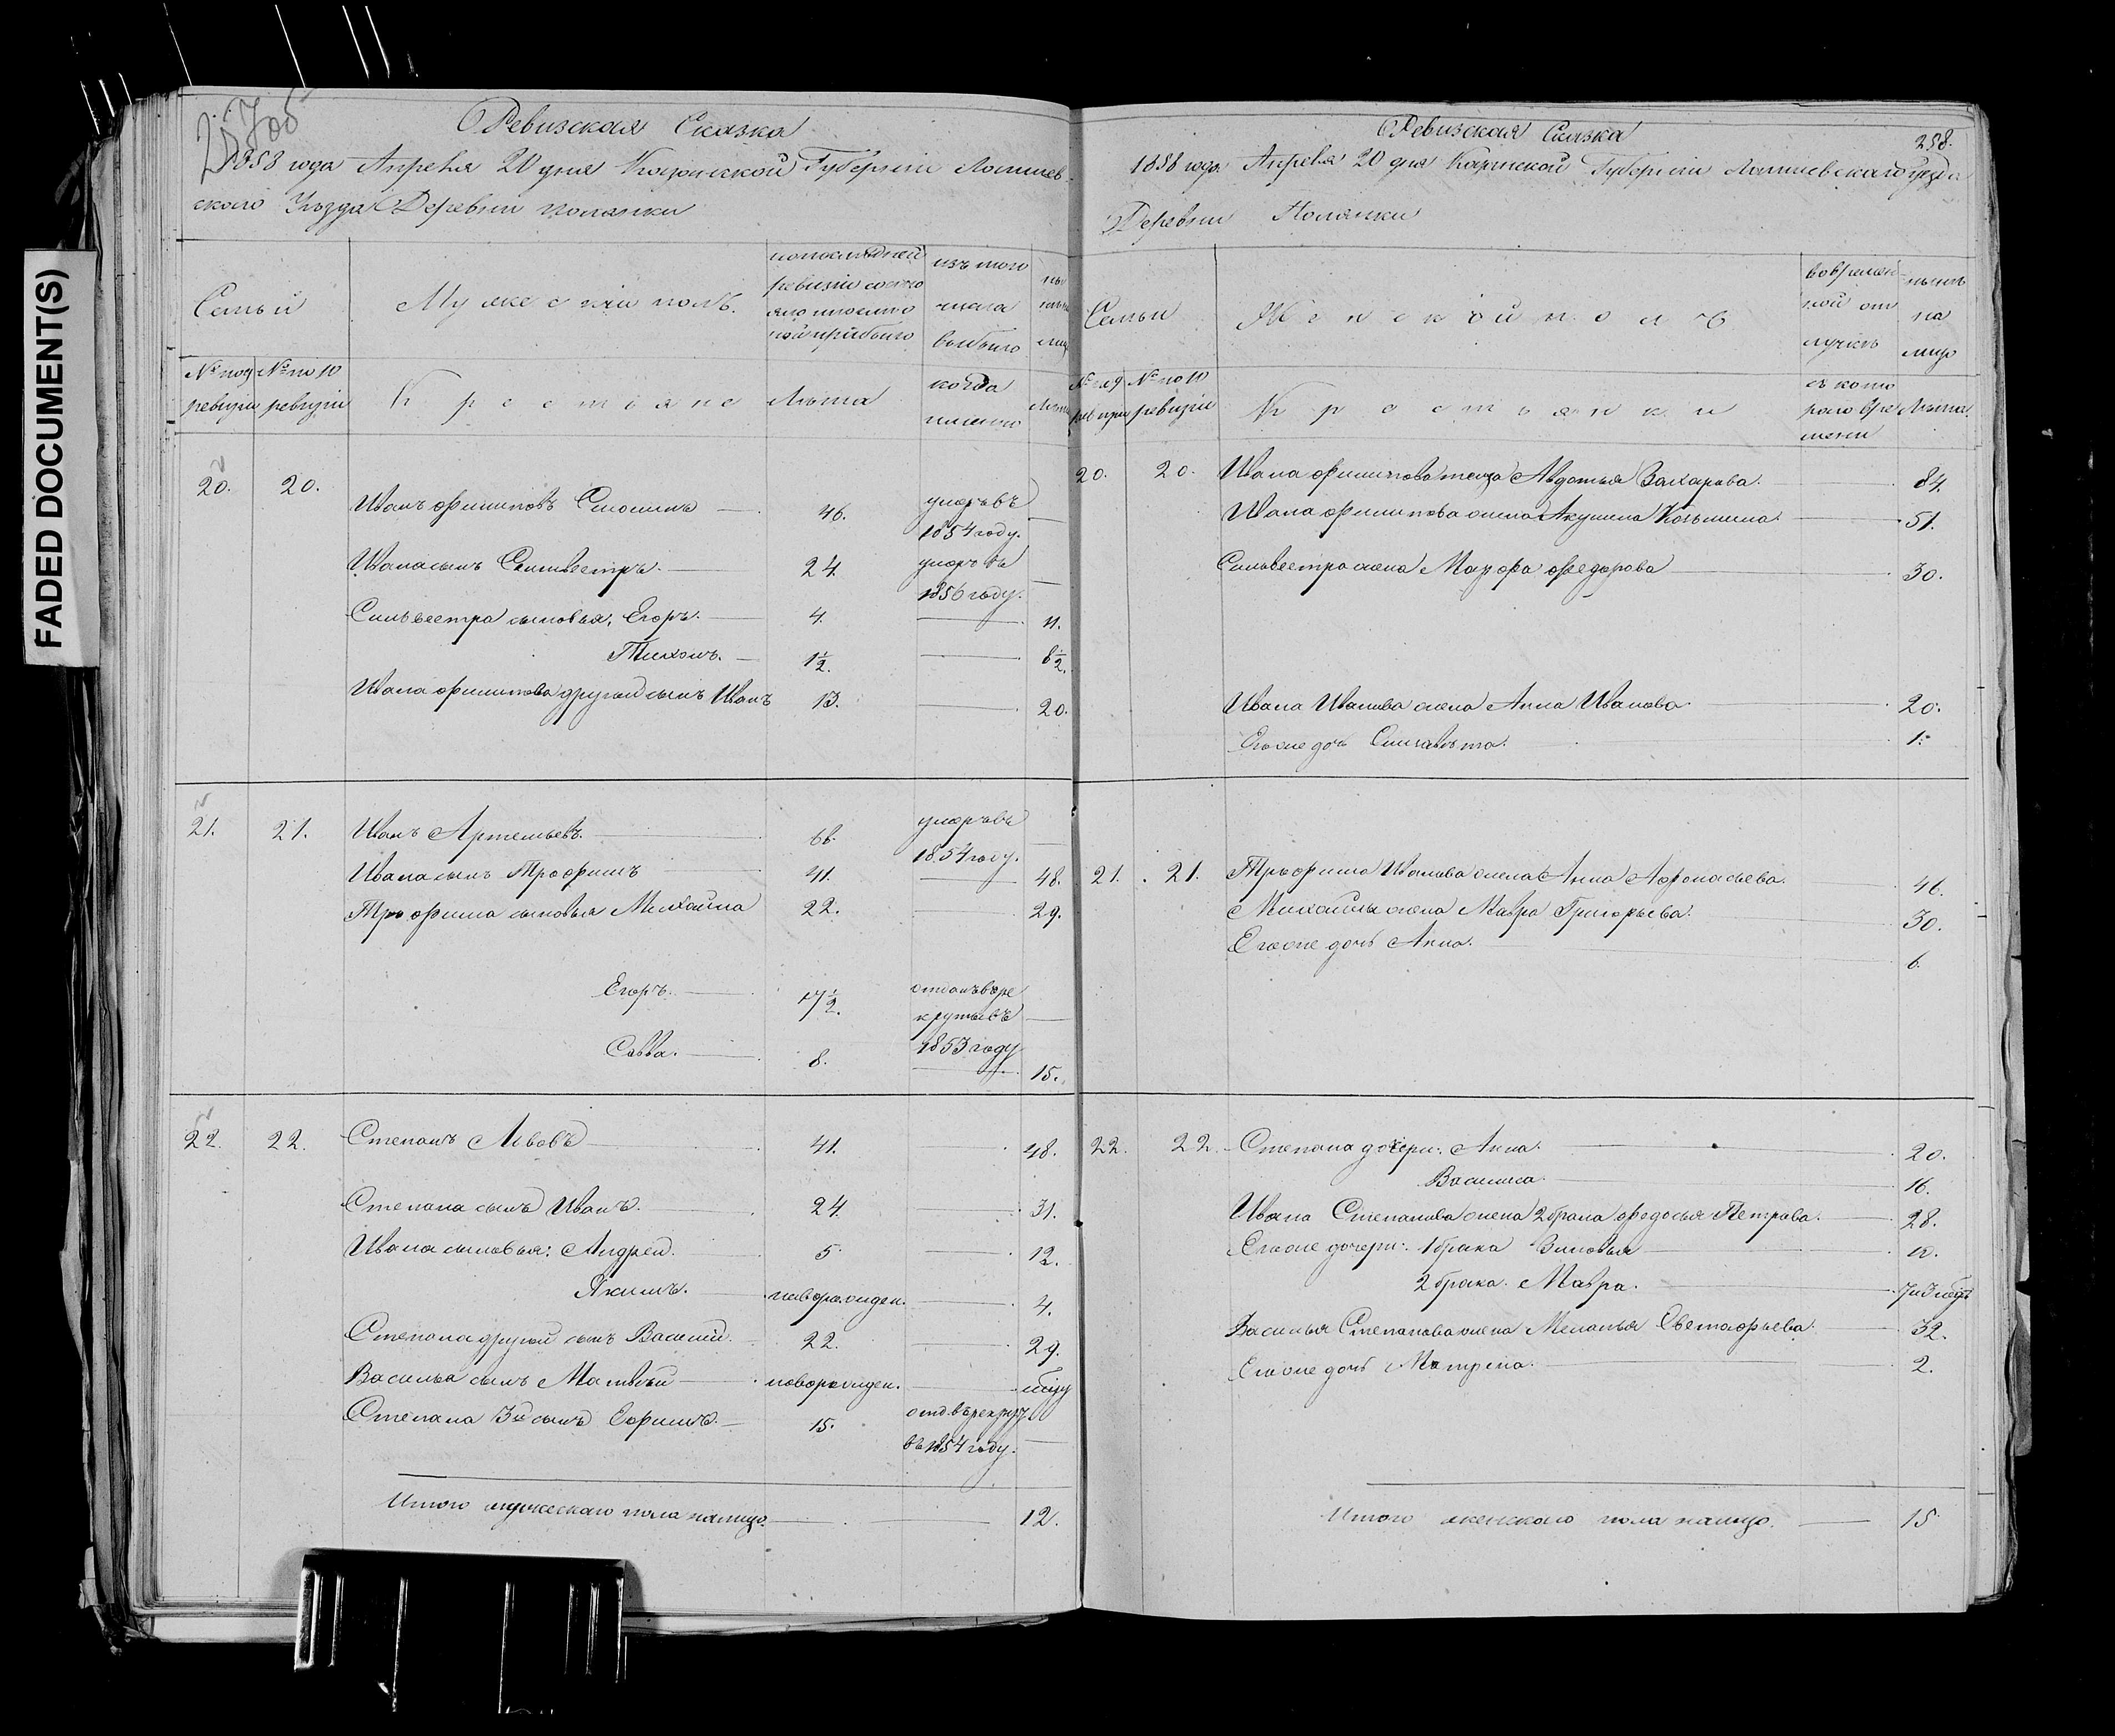 FADED DOCUMENT(S)
Ревизская Сказка
1858 года Апреля 20 дня Казанской Губерніи Лаишев-
скаго Уезда Деревни Полянки
Семьи
Мужескій полъ.
по последней
ревизіи состо
яло и после
той прибыло
изъ того
числа
выбыло
№ по 9
ревизіи
№ по 10
ревизіи
Крестьяне
Лета
когда
именно
Лета
20.
20.
Иванъ Филиповъ
46.
умеръ въ
1854 году.
Ивана сынъ Сильвестръ.
24.
умеръ въ
1856 году.
Сильвестра сыновья; Егоръ.
4.
11.
Тихонъ.
1½.
8½.
Ивана Филипова другой сынъ Иванъ
13.
20.
21.
21.
Иванъ Артемьевъ.
66.
умеръ въ
1854 году.
Ивана сынъ Трофимъ
41.
48.
Трофима сыновья Михайла
22.
29.
Егоръ.
17½.
отданъ въ ре
круты въ
1853 году
Савва.
8.
15.
22.
22.
Степанъ Львовъ
41.
48.
Степана сынъ Иванъ.
24.
31.
Ивана сыновья: Андрей.
5.
12.
Якимъ.
новорожден.
4.
Степана другой сынъ Василій.
22.
29.
Василья сынъ Матвей
новорожден.
Степана 3й сынъ Ефимъ.
15.
отд. въ рекрут
въ 1854 году.
Итого мужескаго пола налицо.
12.
Ревизская Сказка
258.
1858 года Апреля 20 дня Казанской Губерніи Лаишевскаго Уезда
Деревни Полянки
Семьи
Женской полъ
во времен-
ной от
лучке
ныне
на
лицо
№ по 9
ревизіи
№ по 10
ревизіи
Крестьянки
съ кото
раго вре
мени
Лета.
20.
20.
Ивана Филипова Авдотья Захарова.
84.
Ивана Филипова жена Акулина Козьмина.
51.
Сильвестра жена Марфа Федорова
30.
Ивана Иванова жена Анна Иванова.
20.
Его же дочь Елизавета.
1.
21.
21.
Трофима Иванова жена Анна Афонасьева.
46.
Михайлы жена Мавра Григорьева.
30.
Его же дочь Анна.
6.
22.
22.
Степана дочери: Анна.
20.
Василиса.
16.
Ивана Степанова жена 2 брака Федосья Петрова.
28.
Его же дочери: 1 брака Зиновья
2 брака. Мавра.
Василья Степанова жена Меланья Евстафьева.
32.
Его же дочь Матрена.
2.
Итого женскаго пола налицо.
15